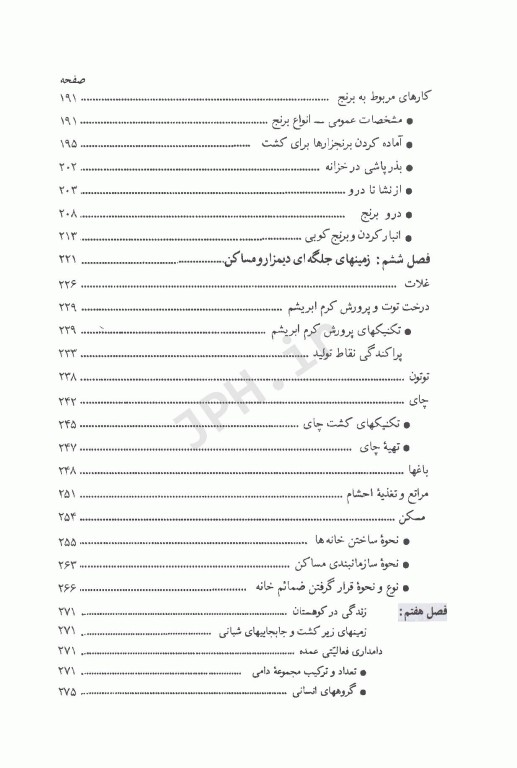 صفحه
کارهای مربوط به برنج ۱۹۱
● مشخصات عمومی — انواع برنج ۱۹۱
● آماده کردن برنجزارها برای کشت ۱۹۵
● بذرپاشی در خزانه ۲۰۲
● از نشا تا درو ۲۰۳
● درو برنج ۲۰۸
● انبار کردن و برنج کوبی ۲۱۳
فصل ششم: زمینهای جلگه ای دیمزار و مساکن ۲۲۱
غلات ۲۲۶
درخت توت و پرورش کرم ابریشم ۲۲۹
● تکنیکهای پرورش کرم ابریشم ۲۲۹
پراکندگی نقاط تولید ۲۳۳
توتون ۲۳۸
چای ۲۴۲
● تکنیکهای کشت چای ۲۴۵
● تهیۀ چای ۲۴۷
باغها ۲۴۸
مراتع و تغذیۀ احشام ۲۵۱
مسکن ۲۵۴
● نحوۀ ساختن خانه ها ۲۵۵
● نحوۀ سازمانبندی مساکن ۲۶۳
● نوع و نحوۀ قرار گرفتن ضمائم خانه ۲۶۶
فصل هفتم: زندگی در کوهستان ۲۷۱
زمینهای زیر کشت و جابجاییهای شبانی ۲۷۱
دامداری فعالیتی عمده ۲۷۱
● تعداد و ترکیب مجموعۀ دامی ۲۷۱
● گروههای انسانی ۲۷۵
JPH.ir